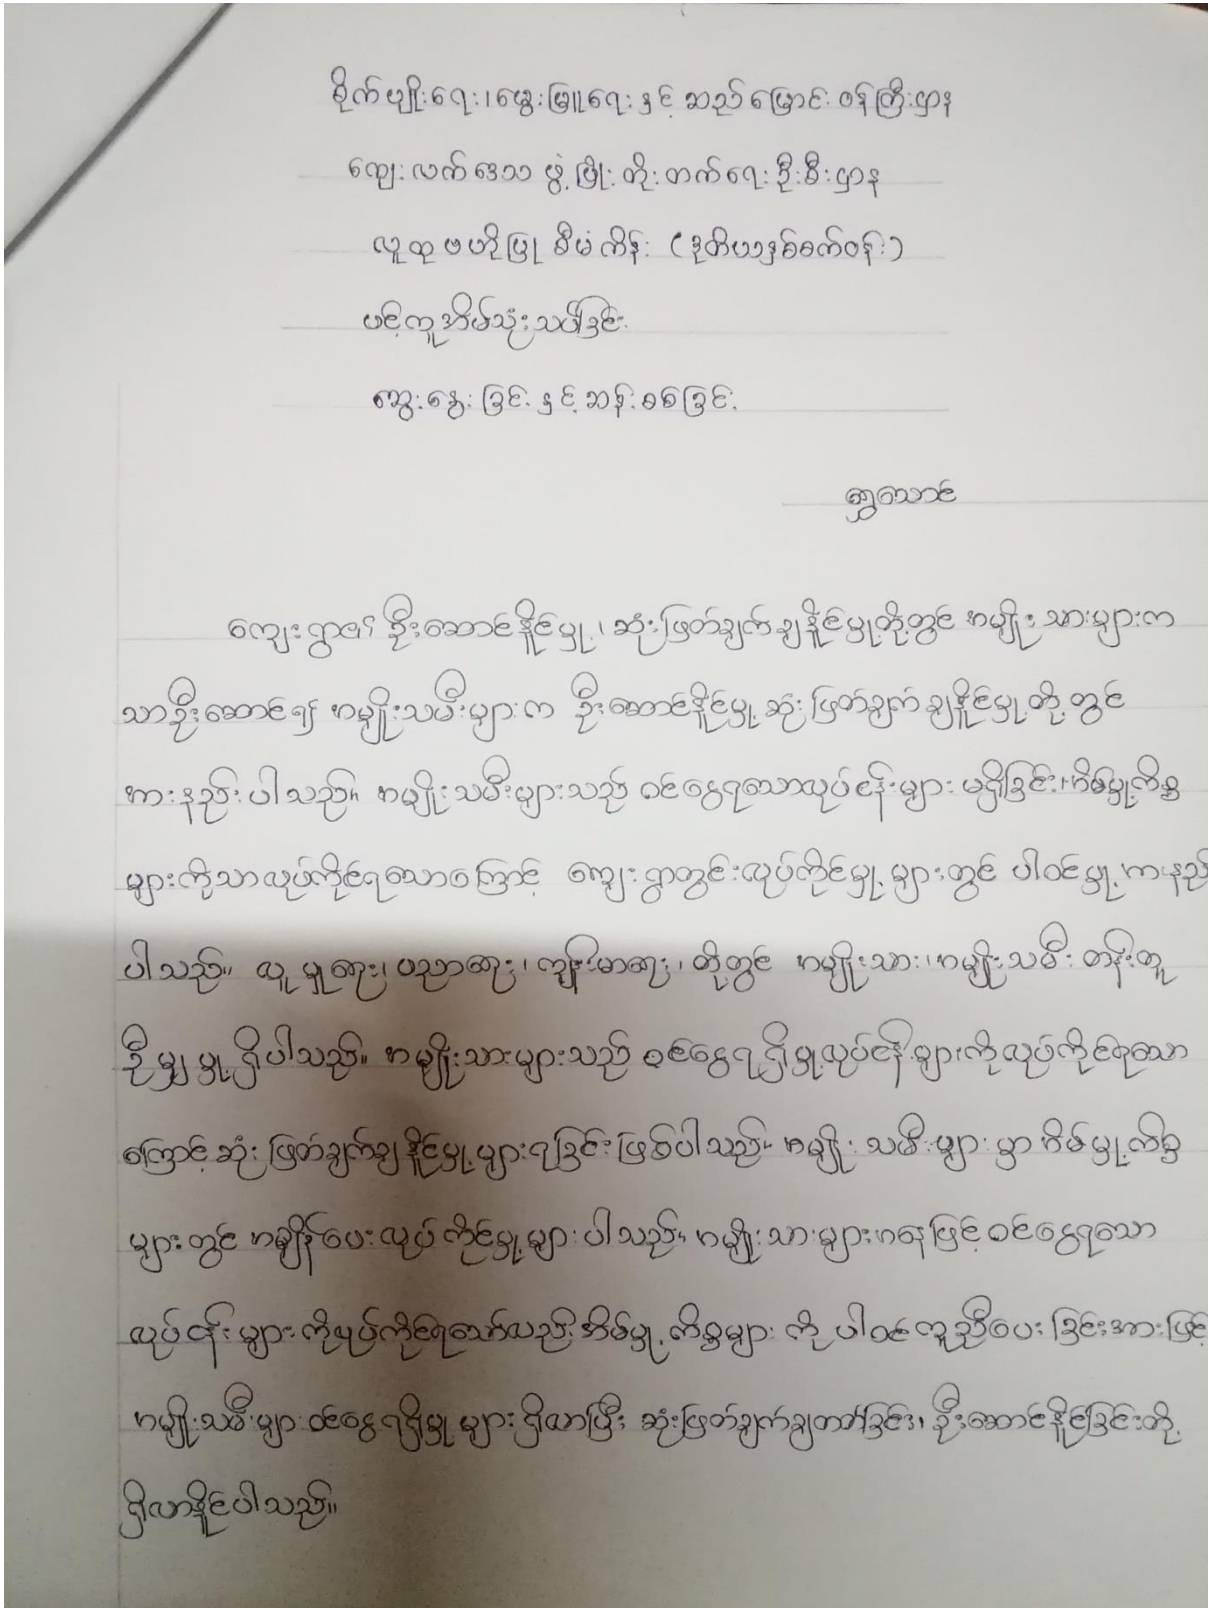 စိုက်ပျိုးရေး၊မွေးမြူရေး နှင့် ဆည်မြောင်း ဝန်ကြီးဌာန
ကျေးလက်ဒေသ ဖွံ့ဖြိုးတိုးတက်ရေးဦးစီးဌာန
လူထုဗဟိုပြု စီမံကိန်း (ဒုတိယနှစ်စက်ဝန်း)
ပင့်ကူအိမ်သုံးသပ်ခြင်း
ဆွေးနွေးခြင်း နှင့် ဆန်းစစ်ခြင်း
ရွှေသောင်
ကျေးရွာ၏ ဦးဆောင်နိုင်မှု၊ ဆုံးဖြတ်ချက်ချနိုင်မှုတို့တွင် အမျိုးသားများက
သာဦးဆောင်၍ အမျိုးသမီးများက ဦးဆောင်နိုင်မှု ဆုံးဖြတ်ချက်ချနိုင်မှုတို့တွင်
အားနည်းပါသည်။ အမျိုးသမီးများသည် ဝင်ငွေရသောလုပ်ငန်းများ မရှိခြင်း၊အိမ်မှုကိစ္စ
များကိုသာလုပ်ကိုင်ရသောကြောင့် ကျေးရွာတွင်းလုပ်ကိုင်မှုများတွင် ပါဝင်မှုအားနည်း
ပါသည်။ လူမှုရေး၊ပညာရေး၊ကျန်းမာရေး၊တို့တွင် အမျိုးသား၊အမျိုးသမီး တန်းတူ
ဦမျှမှုရှိပါသည်။ အမျိုးသားများသည် ဝင်ငွေရရှိမှုလုပ်ငန်းများကိုလုပ်ကိုင်ရသော
ကြောင့် ဆုံးဖြတ်ချက်ချနိုင်မှုများရခြင်းဖြစ်ပါသည်။ အမျိုးသမီးများမှာ အိမ်မှုကိစ္စ
များတွင် အချိန်ပေးလုပ်ကိုင်မှုများပါသည်။ အမျိုးသားများအနေဖြင့် ဝင်ငွေရသော
လုပ်ငန်းများကိုလုပ်ကိုင်ရသော်လည်း အိမ်မှုကိစ္စများကို ပါဝင်ကူညီပေးခြင်းအားဖြင့်
အမျိုးသမီးများ ဝင်ငွေရရှိမှုများရှိလာပြီး ဆုံးဖြတ်ချက်ချတတ်ခြင်း၊ ဦးဆောင်နိုင်ခြင်းတို့
ရှိလာနိုင်ပါသည်။